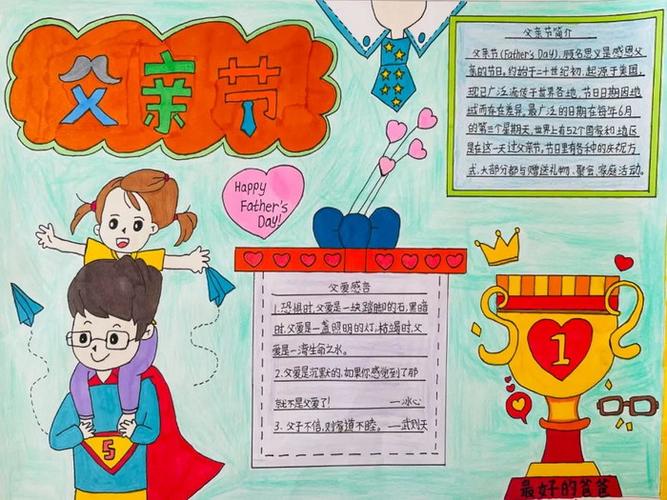 父亲节
父亲节简介
父亲节(Father's Day),顾名思义是感恩父
亲的节日。约始于二十世纪初,起源于美国,
现已广泛流传于世界各地,节日日期因地
域而存在差异。最广泛的日期在每年6月
的第三个星期天,世界上有52个国家和地区
是在这一天过父亲节。节日里有各种的庆祝方
式,大部分都与赠送礼物、聚餐、家庭活动。
Happy
Father's
Day!
父爱感言
1.恐惧时,父爱是一块踏脚的石;黑暗
时,父爱是一盏照明的灯;枯竭时,父
爱是一湾生命之水。
2.父爱是沉默的,如果你感觉到了那
就不是父爱了! —冰心
3. 父子不信,则家道不睦。 —武则天
5
1
最好的爸爸